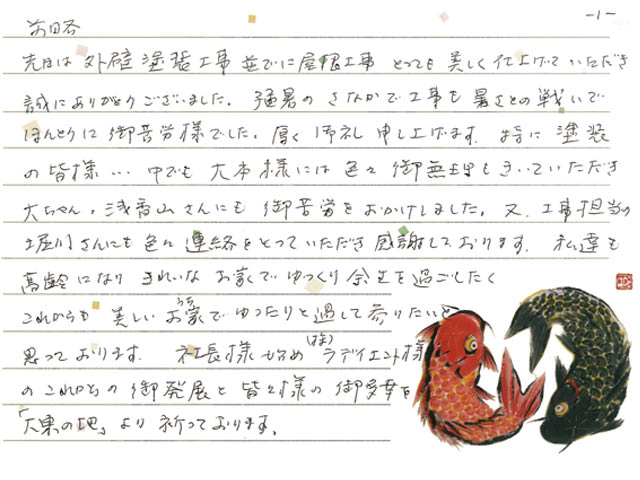 -1-
前略
先日は外壁塗装工事並びに屋根工事 とっても美しく仕上げていただき
誠にありがとうございました。猛暑のさなかで工事も暑さとの戦いで
ほんとうに御苦労様でした。厚く御礼申し上げます。特に塗装
の皆様…中でも大本様には色々御無理もきいていただき
大ちゃん、浅香山さんにも御苦労をおかけしました。又、工事担当の
堀川さんにも色々連絡をとっていただき感謝しております。私達も
高齢になり きれいなお家でゆっくり余生を過ごしたく
これからも美しいお家(うち)でゆったりと過して参りたいと
思っております。社長様始め(株)ラディエント様
のこれからの御発展と皆々様の御多幸を
「大東の地」より祈っております。